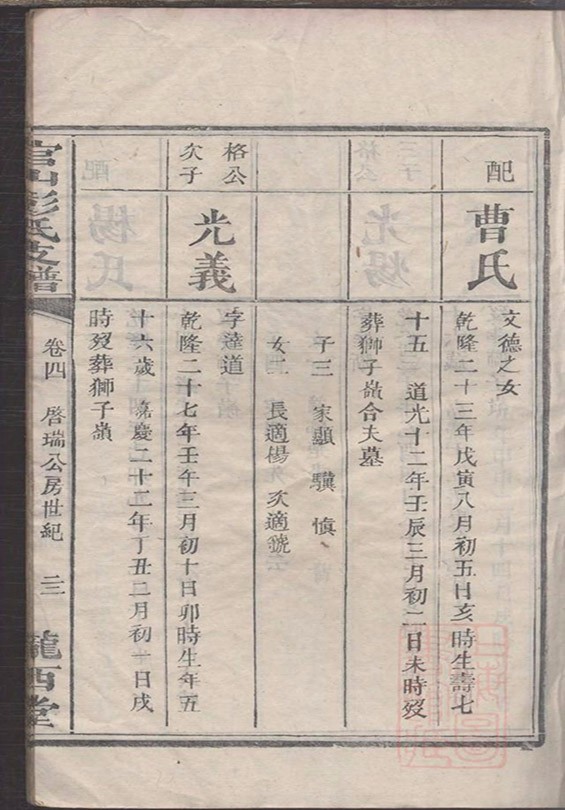 配
曹氏
文德之女
乾隆二十三年戊寅八月初五日亥時生壽七
十五 道光十二年壬辰三月初二日未時歿
葬獅子嶺合夫墓
子三 家顯 驥 慎
女二 長適楊 次適號
格公
次子
光義
字達道
乾隆二十七年壬午三月初十日卯時生年五
十六歲 嘉慶二十二年丁丑二月初一日戌
時歿葬獅子嶺
官山彭氏支譜
卷四 啓瑞公房世紀 二二
隴西堂